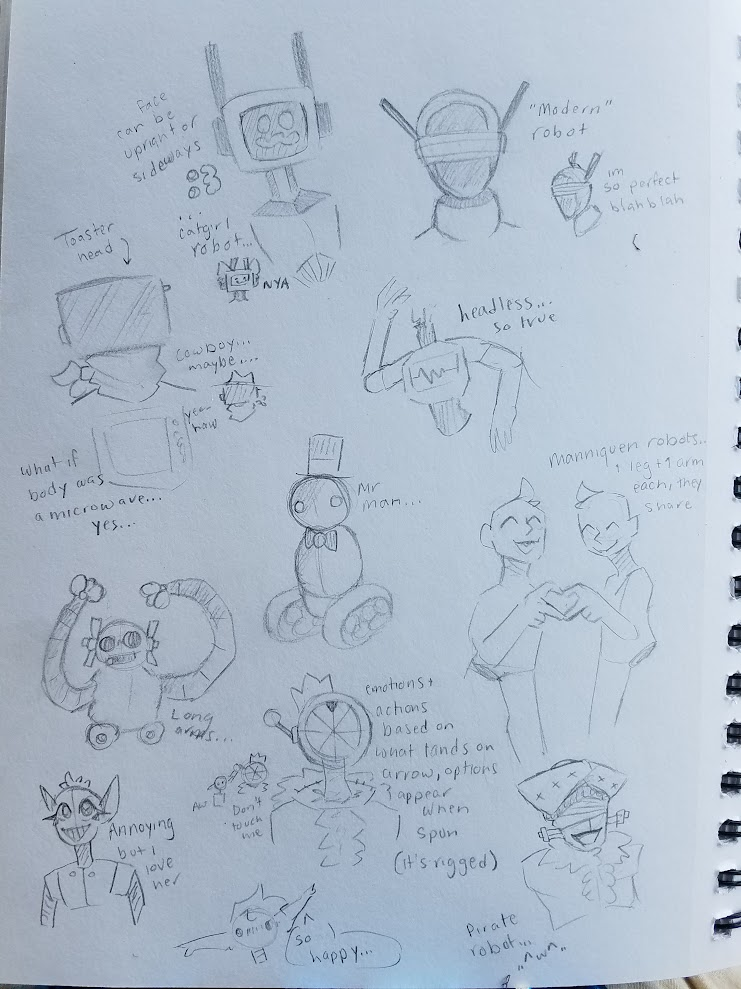 face
can be
upright or
sideways
...
catgirl
robot...
NYA
"Modern"
robot
im
so perfect
blah blah
Toaster
head
cowboy...
maybe....
yea-
haw
headless...
so true
what if
body was
a microwave...
yes...
Mr
man...
Manniquen robots..
1 leg + 1 arm
each, they
share
Long
arms...
emotions +
actions
based on
what lands on
arrow, options
appear
when
spun
(it's rigged)
Aw
Don't
touch
me
Annoying
but I
love
her
so
happy...
Pirate
robot...
^w^